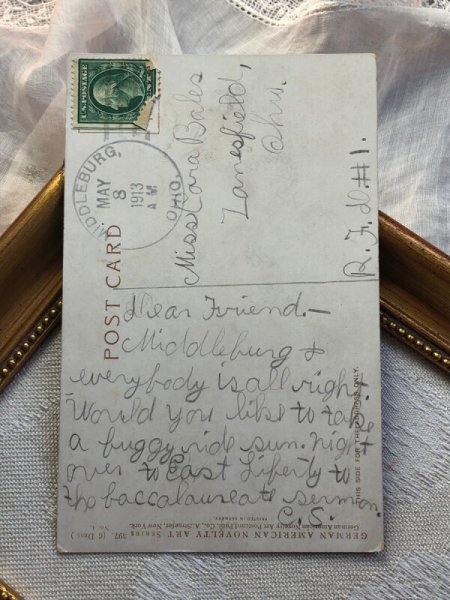 U.S. POSTAGE
MIDDLEBURG,
OHIO.
MAY
8
1913
A.M.
POST CARD
Miss Cora Bales
Zanesfield,
Ohio.
R.F.D.#1.
Dear Friend.—
Middleburg &
everybody is all right
Would you like to take
a buggy ride sun. night
over to East Liberty to
the baccalaureate sermon.
C.S.
THIS SIDE FOR THE ADDRESS ONLY.
GERMAN AMERICAN NOVELTY ART SERIES 397. (6 Des.)
German American Novelty Art Postcard Publ. Co., New York.
No. 1.
PRINTED IN GERMANY.